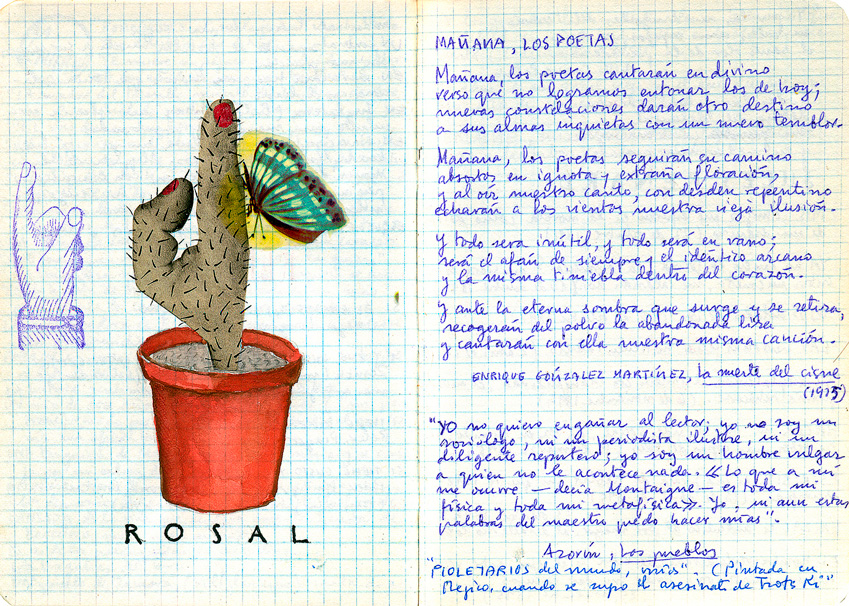 ROSAL
MAÑANA, LOS POETAS
Mañana, los poetas cantarán en divino
verso que no logramos entonar los de hoy;
nuevas constelaciones darán otro destino
a sus almas inquietas con un nuevo temblor.
Mañana, los poetas seguirán su camino
absortos en ignota y extraña floración,
y al oír nuestro canto, con desdén repentino
echarán a los vientos nuestra vieja ilusión.
y todo será inútil, y todo será en vano;
será el afán de siempre y el idéntico arcano
y la misma tiniebla dentro del corazón.
y ante la eterna sombra que surge y se retira,
recogerán del polvo la abandonada lira
y cantarán con ella nuestra misma canción.
ENRIQUE GONZALEZ MARTÍNEZ, La muerte del cisne
(1915)
"YO no quiero engañar al lector; yo no soy un
sociólogo, ni un periodista ilustre, ni un
diligente reportero; yo soy un hombre vulgar
a quien no le acontece nada. «Lo que a mí
me ocurre — decía Montaigne — es toda mi
física y toda mi metafísica». Yo, ni aun estas
palabras del maestro puedo hacer mías".
Azorín, Los pueblos
"PIOLETARIOS del mundo, uníos". (Pintada en
Mejico, cuando se supo el asesinato de Trotski"